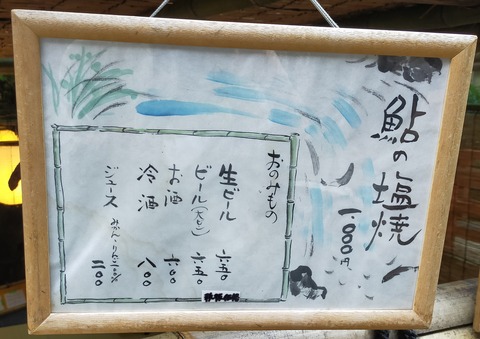 鮎の塩焼
一、〇〇〇円
おのみもの
生ビール 六五〇
ビール(大ビン) 六五〇
お酒 六〇〇
冷酒 八〇〇
ジュース みかん・りんご100% 三〇〇